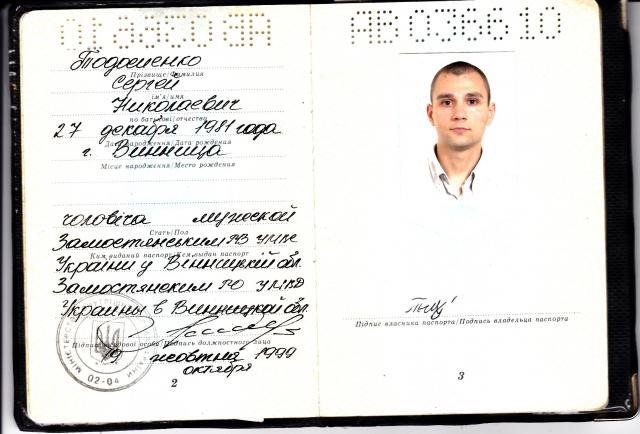 АВ036610
Сергей
Прізвище/Фамилия
Николаевич
ім'я/имя
по батькові/отчество
27 декабря 1981 года
Дата народження/Дата рождения
г. Винница
Місце народження/Место рождения
чоловіча мужской
Стать/Пол
Замостянським РВ УМВС
Ким виданий паспорт/Кем выдан паспорт
України у Вінницькій обл.
Замостянским РО УМВД
Украины в Винницкой обл.
Підпис посадової особи/Подпись должностного лица
19 жовтня 1999
октября
02-04
2
АВ036610
Підпис власника паспорта/Подпись владельца паспорта
3